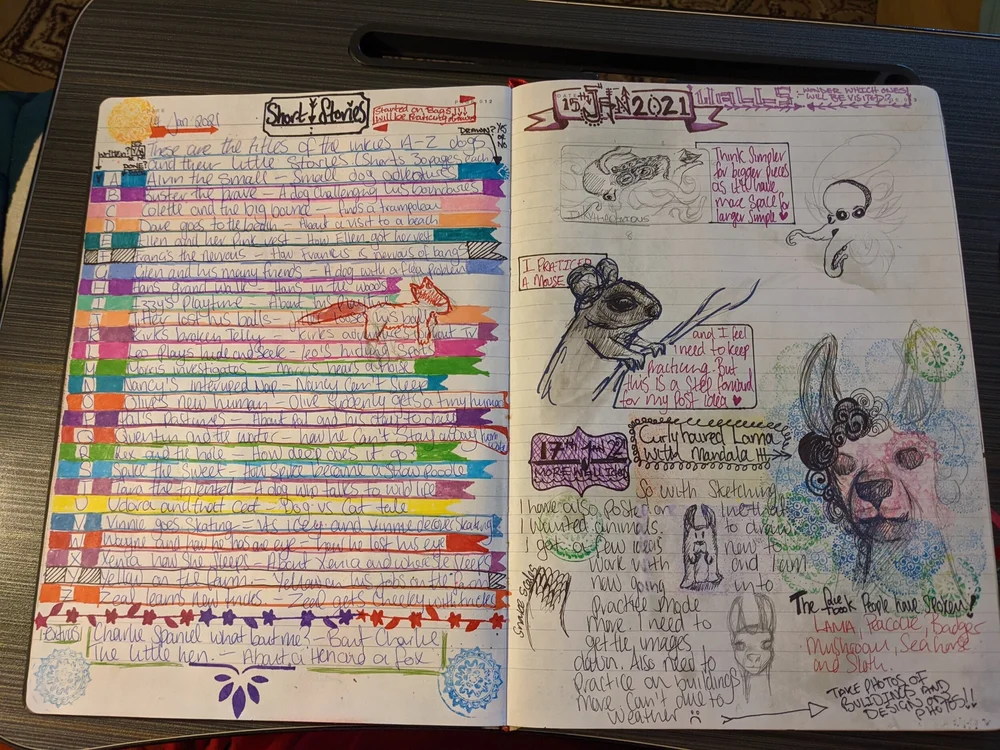 Short Stories
Started on Bags
14 Jan 2021
DRAWN?
These are the titles of the inkies A-Z dogs
and their little Stories (Shorts 30 pages each)
written?
A the small - Small dog adventures
B Buster the brave - A dog challenging his boundaries
C Colette and the big bound - finds a trampolean
D Dave goes to the - About a visit to a beach
E Ellen and her Pink vest - How Ellen got her vest
F Francis the nervous - How Francis is nervous of bangs
G and his many friends - A dog with a flea problem
H Hans grand walk - Hans in the woods
I Izzys Playtime - About his
J lost his balls - his balls
K Kirk's broken Telly - Kirk's without Tv
L Leo Plays hide and Seek - Leo's hiding Spot
M investigates - hears a noise
N Nancy's interuped Nap - Nancy Can't Sleep
O Olive's new human - Olive Suddenly gets a tiny human
P Pals Pastures - About Pal and his
Q Quentin and the water - how he Can't Stay away from
R Rex and the hole - How deep does it go
S Spike the Sweet - Spike became a show Poodle
T Tara the talented - A dog who talks to wild life
U and that Cat - Dog vs Cat tale
V Vinnie goes Skating - It's icey and Vinnie Skating
W Wayne and how he has one eye - how he lost his eye
X Xenia now She Sleeps - About Xenia and where he Sleeps
Y on the farm - his Jobs on the farm
Z Zeal learns new tricks - Zeal gets Cheeky with tricks
Charlie Spaniel what bout me? - Bout Charlie
The little hen. - About a Hen and a fox
15th JAN 2021
WALLS
WONDER WHICH ONES
WILL BE VISITED?
Think Simpler
for bigger pieces
as it'll have
more Space for
larger Simple
I PRATICED
A MOUSE
and I feel
I need to keep
Practicing. But
this is a Step forward
for my Post idea
17th Jan 2
MORE WALL Ideas
Curly haired Lama
with Mandala
So with Sketching
I have also Posted on line that
I wanted animals to draw.
I got a few ideas new to
work with and I am
now going into
Practice mode
more. I need to
get the images
down. Also need to
Practice on buildings
more. Can't due to
weather
The face book People have Spoken!
LAMA, Racoon, Badger
Mushroom, Seahorse
and Sloth.
TAKE PHOTOS OF
BUILDINGS AND
DESIGN ON
PHOTOS!!